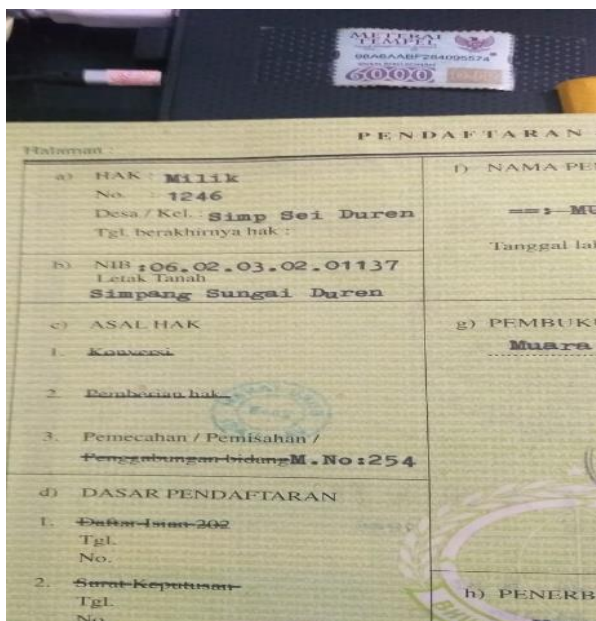 METERAI
TEMPEL
6000
PENDAFTARAN
Halaman :
a) HAK : Milik
No. : 1246
Desa / Kel. : Simp Sei Duren
Tgl. berakhirnya hak :
b) NIB :06.02.03.02.01137
Letak Tanah
Simpang Sungai Duren
c) ASAL HAK
1. Konversi
2. Pemberian hak
3. Pemecahan / Pemisahan /
Penggabungan bidang M.No:254
d) DASAR PENDAFTARAN
1. Daftar Isian 202
Tgl.
No.
2. Surat Keputusan
Tgl.
No.
f) NAMA PE
==: MU
Tanggal la
g) PEMBUKU
Muara
h) PENERB